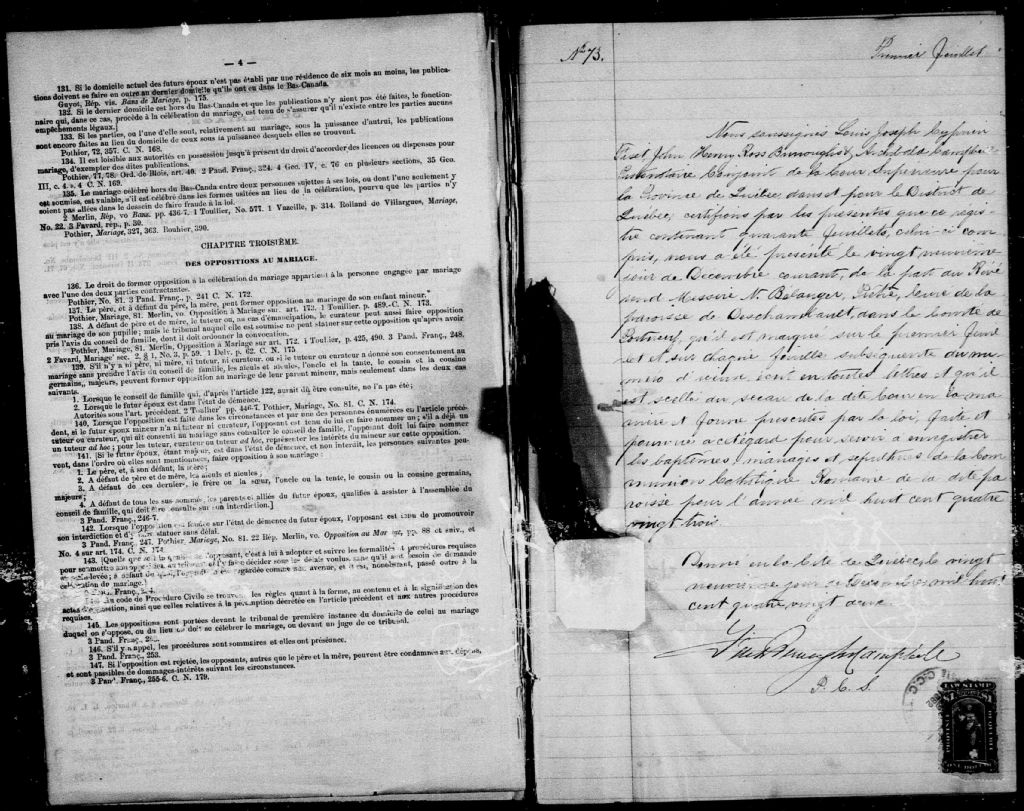 — 4 —
131. Si le domicile actuel des futurs époux n'est pas établi par une résidence de six mois au moins, les publica-
tions doivent se faire en outre au dernier domicile qu'ils ont eu dans le Bas-Canada.
Guyot, Rép. vis. Bans de Mariage, p. 175.
132. Si le dernier domicile est hors du Bas-Canada et que les publications n'y aient pas été faites, le fonction-
naire qui, dans ce cas, procède à la célébration du mariage, est tenu de s'assurer qu'il n'existe entre les parties aucuns
empêchements légaux.]
133. Si les parties, ou l'une d'elle sont, relativement au mariage, sous la puissance d'autrui, les publications
sont encore faites au lieu du domicile de ceux sous la puissance desquels elles se trouvent.
Pothier, 72, 357. C. N. 168.
134. Il est loisible aux autorités en possession jusqu'à présent du droit d'accorder des licences ou dispenses pour
mariage, d'exempter des dites publications.
Pothier, 77, 78. Ord. de Blois, art. 40. 2 Pand. Franç., 324. 4 Geo. IV, c. 76 en plusieurs sections, 35 Geo.
III, c. 4 s. 4 C. N. 169.
135. Le mariage célébré hors du Bas-Canda entre deux personnes sujettes à ses lois, ou dont l'une seulement y
est soumise, est valable, s'il est célébré dans les formes usitées au lieu de la célébration, pourvu que les parties n'y
soient pas allées dans le dessein de faire fraude à la loi.
2 Merlin, Rép, vo Bans. pp. 436-7. 1 Toullier, No. 577. 1 Vazeille, p. 314. Rolland de Villargues, Mariage,
No. 22. 3 Favard, rép., p. 30.
Pothier, Mariage, 327, 363. Rouhier, 390.
CHAPITRE TROISIÈME.
DES OPPOSITIONS AU MARIAGE.
136. Le droit de former opposition à la célébration du mariage appartient à la personne engagée par mariage
avec l'une des deux parties contractantes.
Pothier, No. 81. 3 Pand. Franç., p. 241 C. N. 172.
137. Le père, et à défaut du père, la mère, peut former opposition au mariage de son enfant mineur.
Pothier, Mariage, 81. Merlin, vo. Opposition à Mariage sur. art. 173. 1 Toullier. p. 489.- C. N. 173.
138. A défaut de père et de mère, le tuteur ou, au cas d'émancipation, le curateur peut aussi faire opposition
au mariage de son pupille; mais le tribunal auquel elle est soumise ne peut statuer sur cette opposition qu'après avoir
pris l'avis du conseil de famille, dont il doit ordonner la convocation.
Pothier, Mariage, 81. Merlin, Opposition à Mariage sur art. 172. 1 Toullier, p. 425, 490. 3 Pand. Franç., 248.
2 Favard, Mariage, sec. 2, § 1, No. 3, p. 59. 1 Delv. p. 62. C. N. 175.
139. S'il n'y a ni père, ni mère, ni tuteur, ni curateur, ou si le tuteur ou curateur a donné son consentement au
mariage sans prendre l'avis du conseil de famille, les aïeuls et aïeules, l'oncle et la tante, le cousin et la cousine
germains, majeurs, peuvent former opposition au mariage de leur parent mineur, mais seulement dans les deux cas
suivants.
1. Lorsque le conseil de famille qui, d'après l'article 122, aurait dû être consulté, ne l'a pas été;
2. Lorsque le futur époux est dans l'état de démence.
Autorités sous l'art. précédent. 2 Toullier, pp. 446-7. Pothier, Mariage, No. 81. C. N. 174.
140. Lorsque l'opposition est faite dans les circonstances et par une des personnes énumérées en l'article précé-
dent, si le futur époux mineur n'a ni tuteur ni curateur, l'opposant est tenu de lui en faire nommer un; s'il a déjà un
tuteur ou curateur, qui ait consenti au mariage sans consulter le conseil de famille, l'opposant doit lui faire nommer
un tuteur ad hoc; pour les tuteur, curateur ou tuteur ad hoc, représenter les intérêts du mineur sur cette opposition.
141. [Si le futur époux, étant majeur, est dans l'état de démence, et non interdit, les personnes suivantes peu-
vent, dans l'ordre où elles sont mentionnées, faire opposition à son mariage :
1. Le père, et, à son défaut, la mère;
2. A défaut de père et de mère, les aïeuls et aïeules;
3. A défaut de ces derniers, le frère ou la sœur, l'oncle ou la tante, le cousin ou la cousine germains,
majeurs;
4. A défaut de tous les sus nommés, les parents et alliés du futur époux, qualifiés à assister à l'assemblée du
conseil de famille, qui doit être consulté sur son interdiction.]
3 Pand. Franç., 246-7.
142. Lorsque l'opposition est fondée sur l'état de démence du futur époux, l'opposant est tenu de promouvoir
son interdiction et d'y faire statuer sans délai.
3 Pand. Franç., 247. Pothier, Mariage, No. 81. 22 Rép. Merlin, vo. Opposition au Mariage, pp. 88 et suiv., et
No. 4 sur art. 174. C. N. 174.
143. [Quelle que soit la qualité de l'opposant, c'est à lui à adopter et suivre les formalités et procédures requises
pour soumettre son opposition au tribunal et l'y faire décider sous les délais voulus, sans qu'il soit besoin de demande
en main-levée; à défaut de quoi, l'opposition est regardée comme non avenue, et il est, nonobstant, passé outre à la
célébration du mariage.]
Franç., 254.
144. Au code de Procédure Civile se trouvent les règles quant à la forme, au contenu et à la signification des
actes d'opposition, ainsi que celles relatives à la péremption décrétée en l'article précédent et aux autres procédures
requises.
145. Les oppositions sont portées devant le tribunal de première instance du domicile de celui au mariage
duquel on s'oppose, ou du lieu où doit se célébrer le mariage, ou devant un juge de ce tribunal.
3 Pand. Franç.,
146. S'il y a appel, les procédures sont sommaires et elles ont préséance.
3 Pand. Franç., 253.
147. Si l'opposition est rejetée, les opposants, autres que le père et la mère, peuvent être condamnés aux dépens,
et sont passibles de dommages-intérêts suivant les circonstances.
3 Pand. Franç., 255-6. C. N. 179.
No 73. Premier feuillet
Nous soussignés Louis Joseph Cyprien
Fiset, John Henry Ross Burroughs &, Archibald Campbell
Protonotaire Conjoint de la Cour Supérieure pour
la Province de Québec, dans et pour le District de
Québec, certifions par les présentes que ce regis-
tre contenant quarante feuillets, celui-ci com-
pris, nous a été présenté le vingt neuvième
jour de Décembre courant, de la part du Révé
rend Messire N. Belanger, Prêtre, Curé de la
paroisse de Deschambault, dans le Comté de
Portneuf, qu'il est marqué sur le premier feuil
let et sur chaque feuille subséquente du nu-
méro d'icelui écrit en toutes lettres et qu'il
est scellé du sceau de la dite Cour en la ma
nière et forme prescrites par la loi, faite et
pourvue à cet égard pour servir à enregistrer
les baptêmes, mariages et sépultures de la Com
munion Catholique Romaine de la dite pa
roisse pour l'année mil huit cent quatre
vingt trois.
Donné en la Cité de Québec, le vingt
neuvième jour de Décembre mil huit
cent quatre vingt deux.
Fiset Burroughs Campbell
P. C. S.
LAW STAMP
ONE DOLLAR